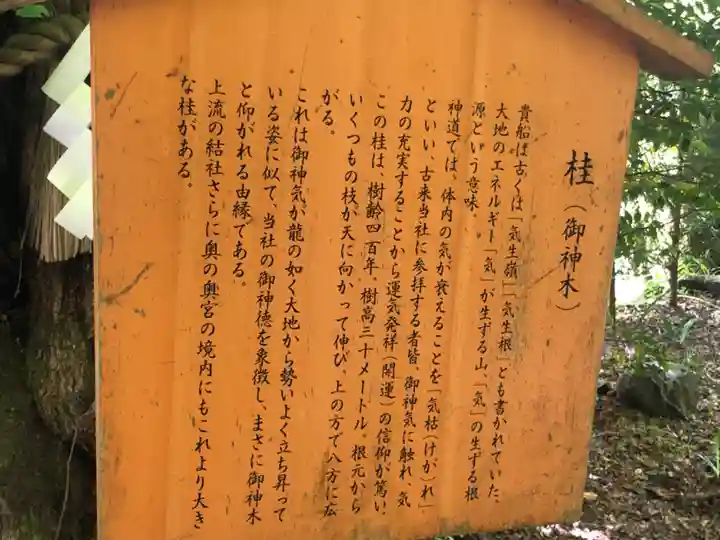 桂（御神木）
貴船は古くは「気生嶺」「気生根」とも書かれていた、
大地のエネルギー「気」が生ずる山、「気」の生ずる根
源という意味
神道では、体内の気が衰えることを「気枯（けが）れ」
といい、古来当社に参拝する者皆、御神気に触れ、気
力の充実することから運気発祥（開運）の信仰が篤い。
この桂は、樹齢四百年、樹高三十メートル。根元から
いくつもの枝が天に向かって伸び、上の方で八方に広
がる。
これは御神気が龍の如く大地から勢いよく立ち昇って
いる姿に似て、当社の御神徳を象徴し、まさに御神木
と仰がれる由縁である。
上流の結社さらに奥の奥宮の境内にもこれより大き
な桂がある。